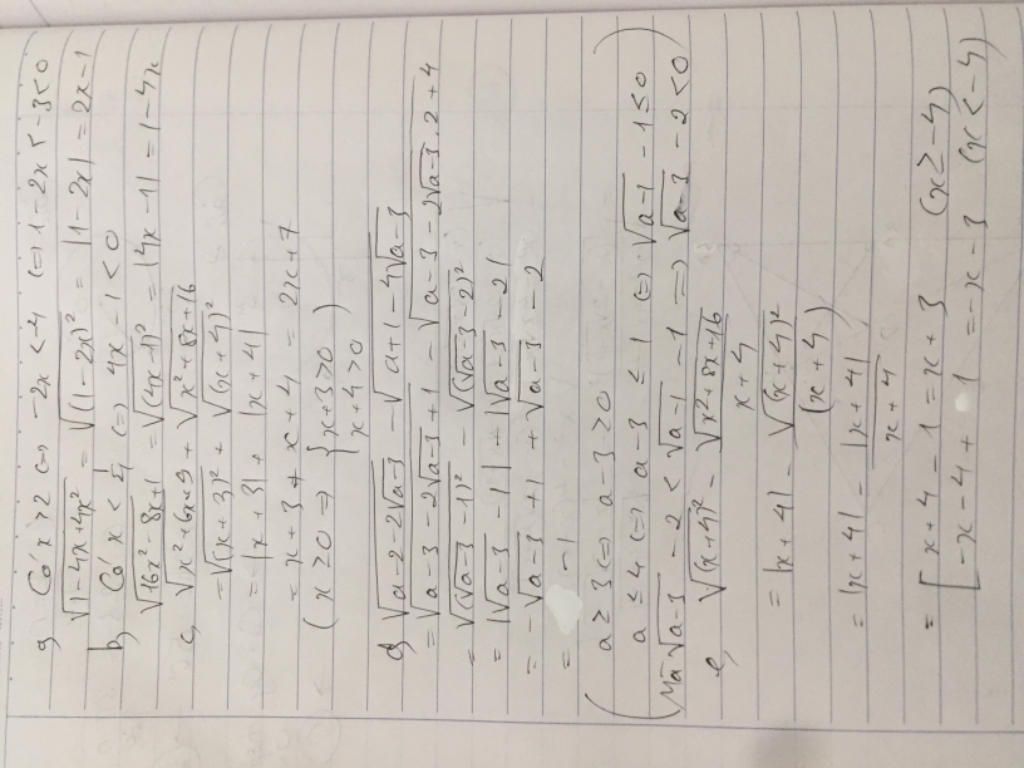 a, Có x > 2 <=> -2x < -4 <=> 1 - 2x < -3 < 0
√(1-4x+4x²) = √(1-2x)² = |1-2x| = 2x-1
b, Có x < 1/4 <=> 4x - 1 < 0
√(16x²-8x+1) = √(4x-1)² = |4x-1| = 1-4x
c, √(x²+6x+9) + √(x²+8x+16)
= √(x+3)² + √(x+4)²
= |x+3| + |x+4|
= x+3 + x+4 = 2x+7
(x ≥ 0 => { x+3>0
x+4>0 )
d, √(a-2-2√(a-3)) - √(a+1-4√(a-3))
= √(a-3-2√(a-3)+1) - √(a-3-2√(a-3).2+4)
= √(√(a-3)-1)² - √(√(a-3)-2)²
= |√(a-3)-1| + |√(a-3)-2|
= -√(a-3)+1+√(a-3)-2
= -1
( a ≥ 3 <=> a-3 ≥ 0
a ≤ 4 <=> a-3 ≤ 1 <=> √(a-1) - 1 ≤ 0
Mà √(a-3) - 2 < √(a-1) - 1 => √(a-3) - 2 < 0 )
e, √(x+4)² - √(x²+8x+16)/(x+4)
= |x+4| - √(x+4)²/(x+4)
= |x+4| - |x+4|/(x+4)
= [ x+4-1 = x+3 (x ≥ -4)
-x-4+1 = -x-3 (x < -4)